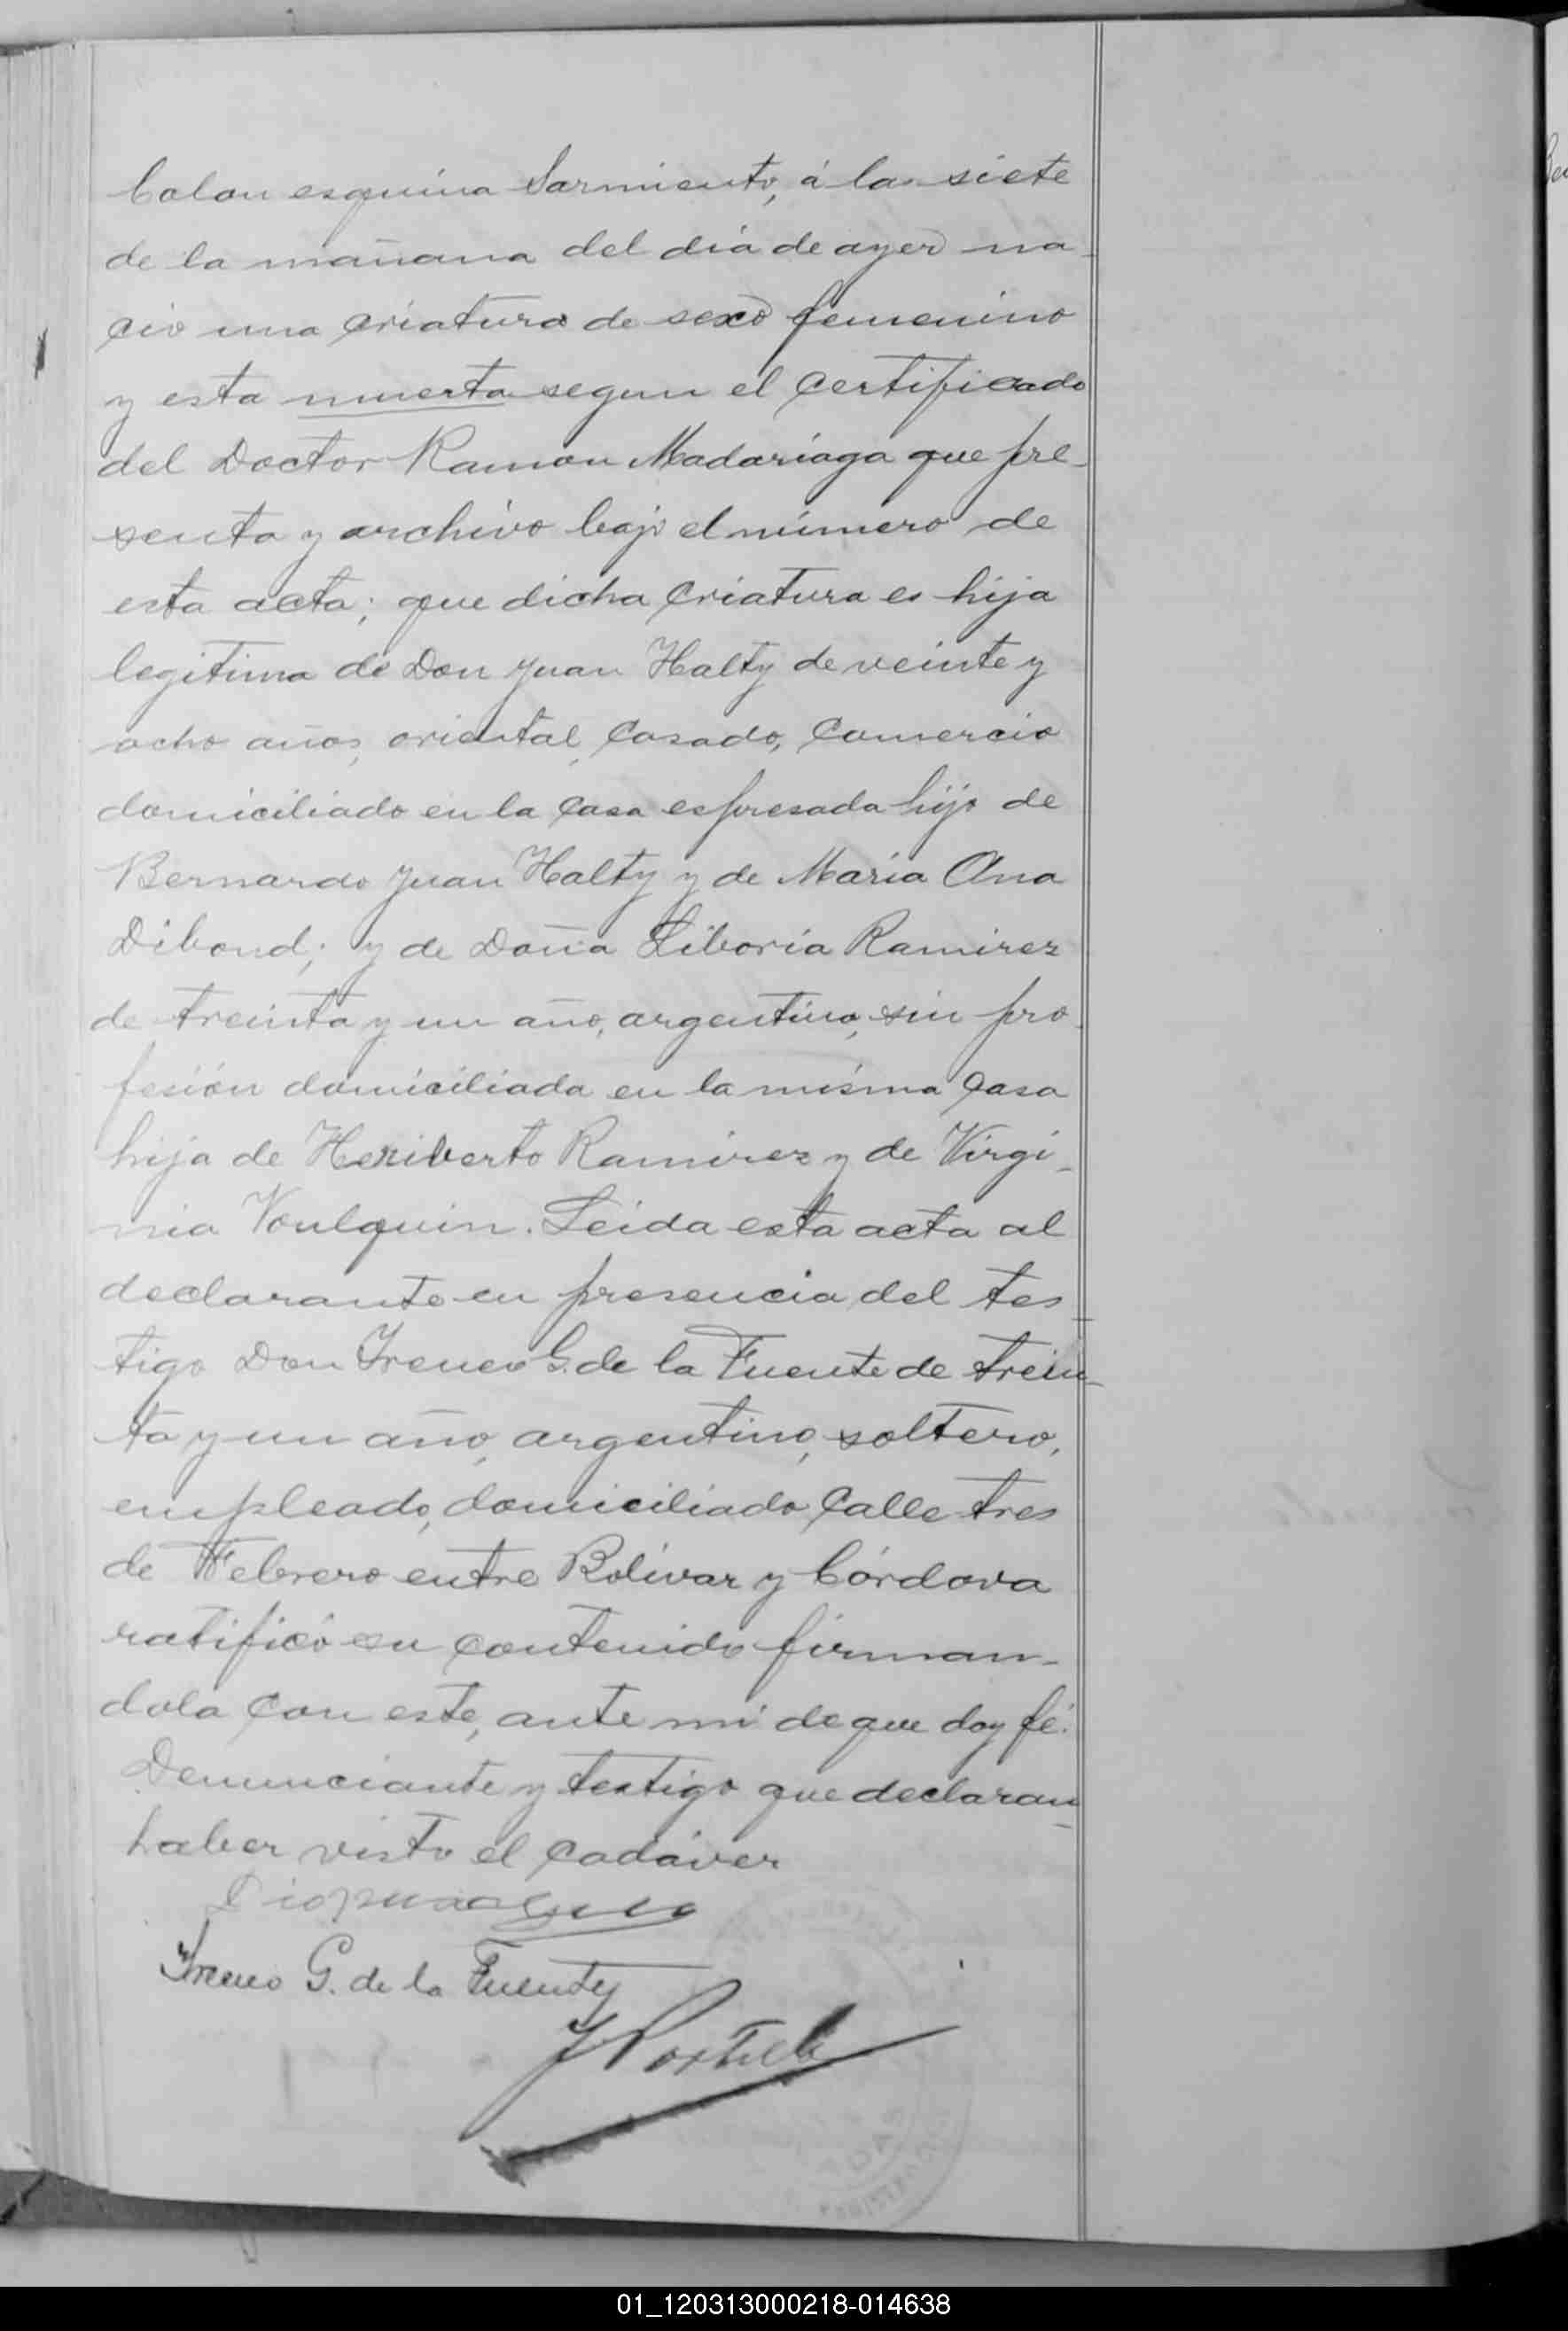 Colon esquina Sarmiento, á las siete
de la mañana del dia de ayer na-
cio una criatura de sexo femenino
y esta muerta segun el certificado
del Doctor Ramon Madariaga que pre-
senta y archivo bajo el número de
esta acta; que dicha criatura es hija
legitima de Don Juan Halty de veinte y
ocho años, oriental, casado, comercio
domiciliado en la casa espresada hijo de
Bernardo Juan Halty y de Maria Ana
Dibond; y de Doña Liboria Ramirez
de treinta y un año, argentina, sin pro-
fesión domiciliada en la misma casa
hija de Heriberto Ramirez y de Virgi-
nia Voulquin. Leida esta acta al
declarante en presencia del tes-
tigo Don Ireneo G. de la Fuente de trein-
ta y un año, argentino, soltero,
empleado, domiciliado calle tres
de Febrero entre Bolivar y Córdova
ratificó su contenido firman-
dola con este, ante mi de que doy fé.
Denunciante y testigo que declaran
haber visto el cadáver
Ireneo G. de la Fuente
01_120313000218-014638